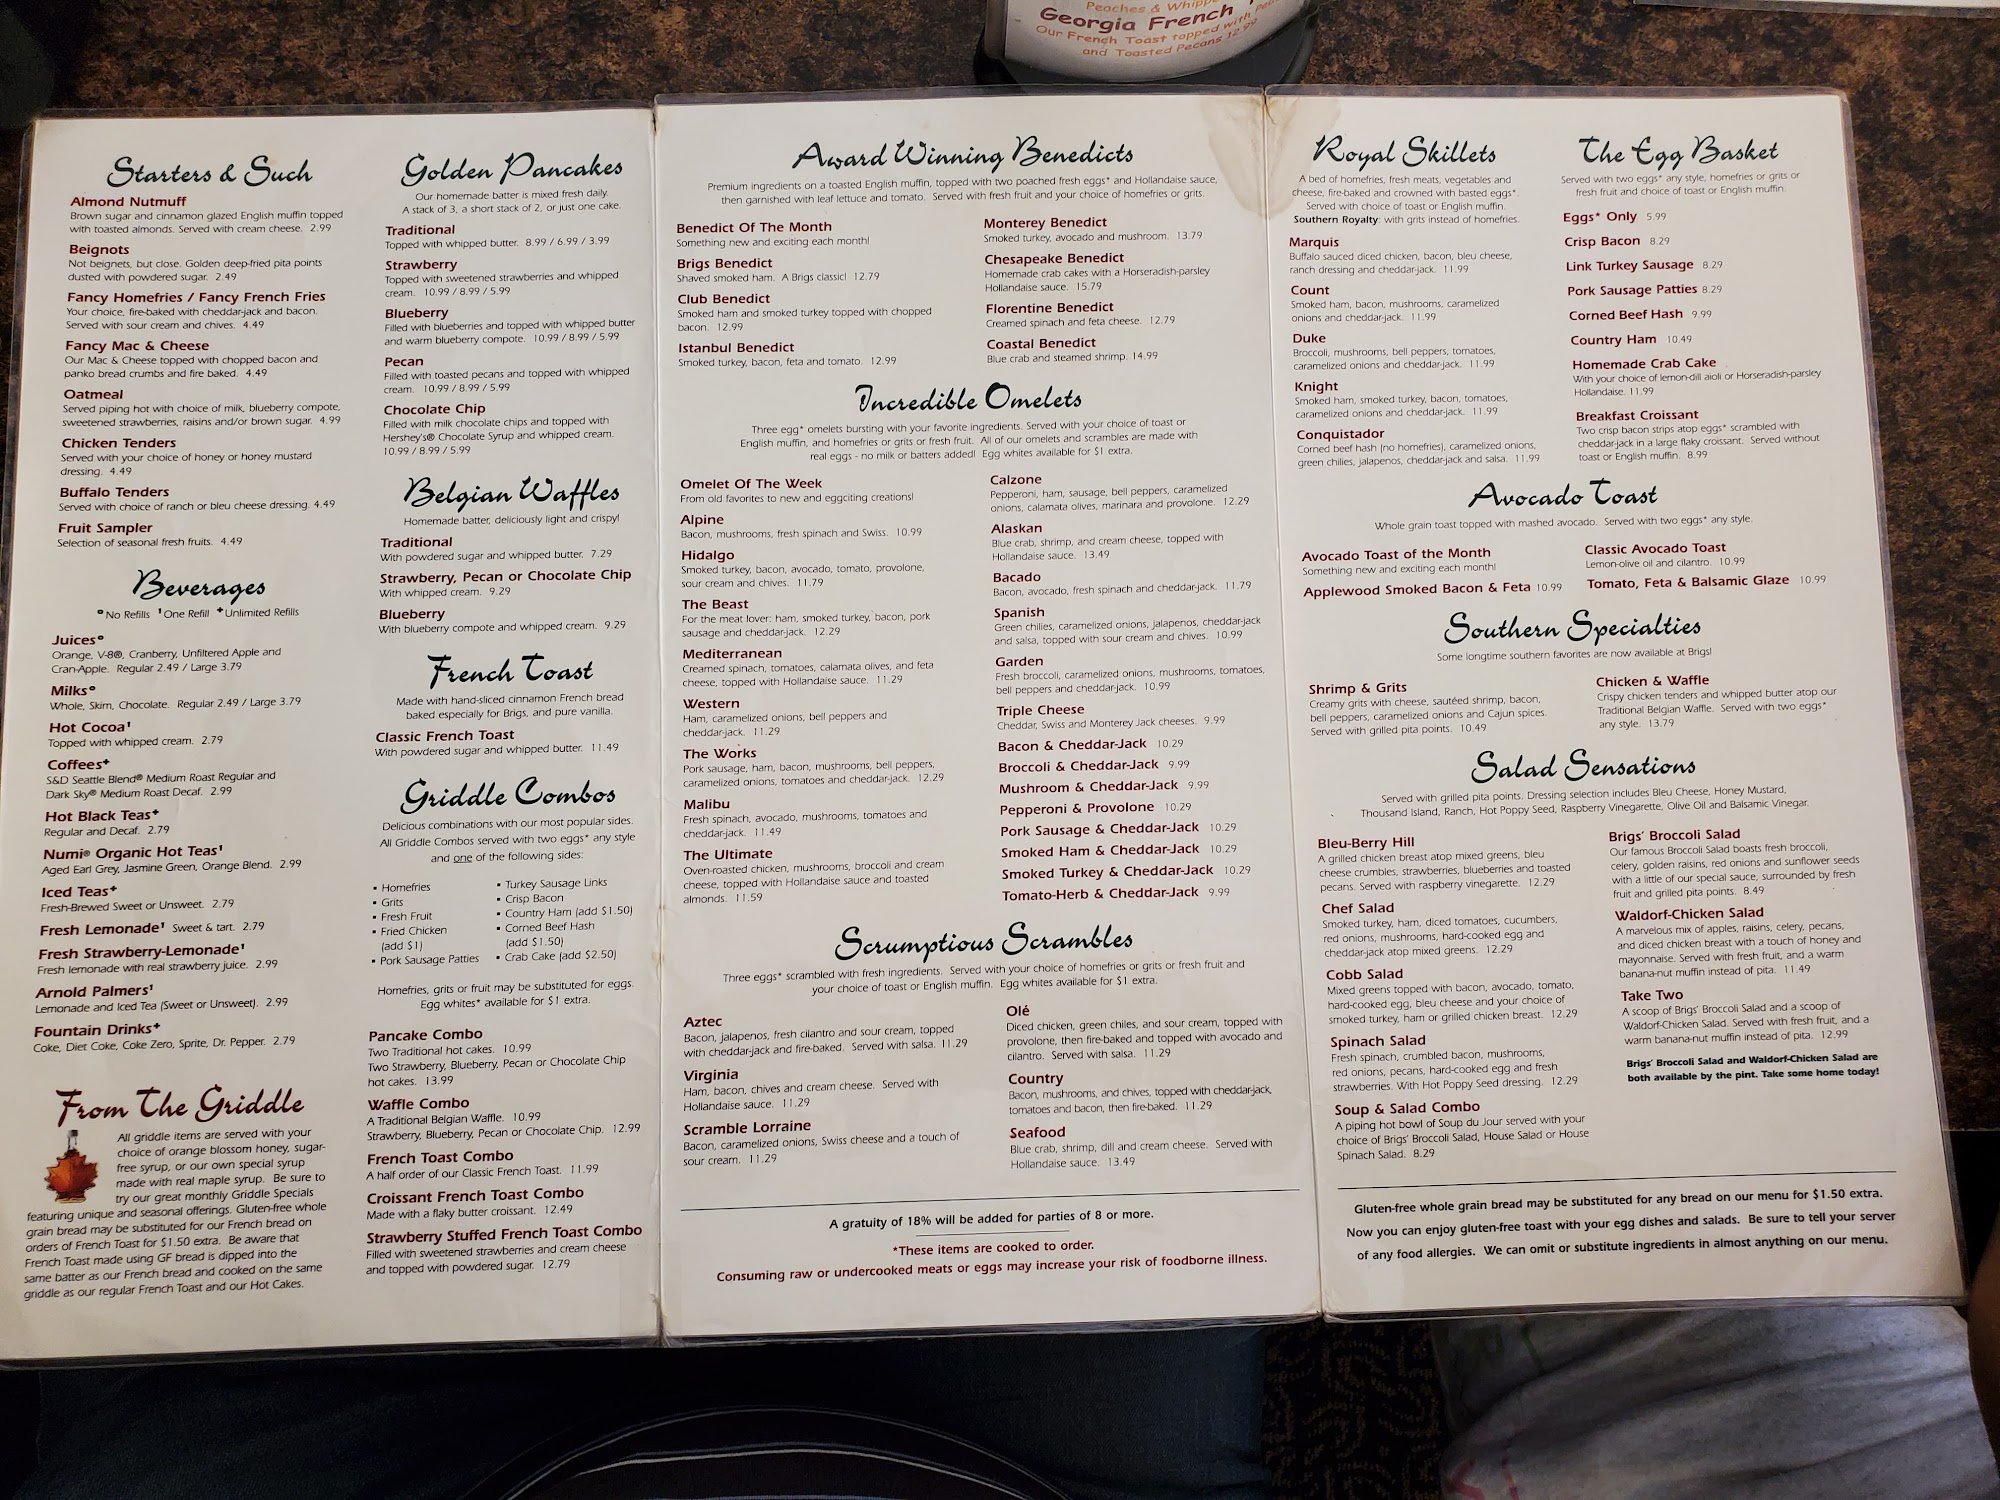 Peaches & Whipp
Georgia French
Our French Toast topped with
and Toasted Pecans 12.99
Starters & Such
Almond Nutmuff
Brown sugar and cinnamon glazed English muffin topped
with toasted almonds. Served with cream cheese. 2.99
Beignots
Not beignets, but close. Golden deep-fried pita points
dusted with powdered sugar. 2.49
Fancy Homefries / Fancy French Fries
Your choice, fire-baked with cheddar-jack and bacon.
Served with sour cream and chives. 4.49
Fancy Mac & Cheese
Our Mac & Cheese topped with chopped bacon and
panko bread crumbs and fire baked. 4.49
Oatmeal
Served piping hot with choice of milk, blueberry compote,
sweetened strawberries, raisins and/or brown sugar. 4.99
Chicken Tenders
Served with your choice of honey or honey mustard
dressing. 4.49
Buffalo Tenders
Served with choice of ranch or bleu cheese dressing. 4.49
Fruit Sampler
Selection of seasonal fresh fruits. 4.49
Beverages
°No Refills ¹One Refill ⁺Unlimited Refills
Juices°
Orange, V-8®, Cranberry, Unfiltered Apple and
Cran-Apple. Regular 2.49 / Large 3.79
Milks°
Whole, Skim, Chocolate. Regular 2.49 / Large 3.79
Hot Cocoa¹
Topped with whipped cream. 2.79
Coffees⁺
S&D Seattle Blend® Medium Roast Regular and
Dark Sky® Medium Roast Decaf. 2.99
Hot Black Teas⁺
Regular and Decaf. 2.79
Numi® Organic Hot Teas¹
Aged Earl Grey, Jasmine Green, Orange Blend. 2.99
Iced Teas⁺
Fresh-Brewed Sweet or Unsweet. 2.79
Fresh Lemonade¹ Sweet & tart. 2.79
Fresh Strawberry-Lemonade¹
Fresh lemonade with real strawberry juice. 2.99
Arnold Palmers¹
Lemonade and Iced Tea (Sweet or Unsweet). 2.99
Fountain Drinks⁺
Coke, Diet Coke, Coke Zero, Sprite, Dr. Pepper. 2.79
From The Griddle
All griddle items are served with your
choice of orange blossom honey, sugar-
free syrup, or our own special syrup
made with real maple syrup. Be sure to
try our great monthly Griddle Specials
featuring unique and seasonal offerings. Gluten-free whole
grain bread may be substituted for our French bread on
orders of French Toast for $1.50 extra. Be aware that
French Toast made using GF bread is dipped into the
same batter as our French bread and cooked on the same
griddle as our regular French Toast and our Hot Cakes.
Golden Pancakes
Our homemade batter is mixed fresh daily.
A stack of 3, a short stack of 2, or just one cake.
Traditional
Topped with whipped butter. 8.99 / 6.99 / 3.99
Strawberry
Topped with sweetened strawberries and whipped
cream. 10.99 / 8.99 / 5.99
Blueberry
Filled with blueberries and topped with whipped butter
and warm blueberry compote. 10.99 / 8.99 / 5.99
Pecan
Filled with toasted pecans and topped with whipped
cream. 10.99 / 8.99 / 5.99
Chocolate Chip
Filled with milk chocolate chips and topped with
Hershey's® Chocolate Syrup and whipped cream.
10.99 / 8.99 / 5.99
Belgian Waffles
Homemade batter, deliciously light and crispy!
Traditional
With powdered sugar and whipped butter. 7.29
Strawberry, Pecan or Chocolate Chip
With whipped cream. 9.29
Blueberry
With blueberry compote and whipped cream. 9.29
French Toast
Made with hand-sliced cinnamon French bread
baked especially for Brigs, and pure vanilla.
Classic French Toast
With powdered sugar and whipped butter. 11.49
Griddle Combos
Delicious combinations with our most popular sides.
All Griddle Combos served with two eggs* any style
and one of the following sides:
▪ Homefries
▪ Grits
▪ Fresh Fruit
▪ Fried Chicken
(add $1)
▪ Pork Sausage Patties
▪ Turkey Sausage Links
▪ Crisp Bacon
▪ Country Ham (add $1.50)
▪ Corned Beef Hash
(add $1.50)
▪ Crab Cake (add $2.50)
Homefries, grits or fruit may be substituted for eggs.
Egg whites* available for $1 extra.
Pancake Combo
Two Traditional hot cakes. 10.99
Two Strawberry, Blueberry, Pecan or Chocolate Chip
hot cakes. 13.99
Waffle Combo
A Traditional Belgian Waffle. 10.99
Strawberry, Blueberry, Pecan or Chocolate Chip. 12.99
French Toast Combo
A half order of our Classic French Toast. 11.99
Croissant French Toast Combo
Made with a flaky butter croissant. 12.49
Strawberry Stuffed French Toast Combo
Filled with sweetened strawberries and cream cheese
and topped with powdered sugar. 12.79
Award Winning Benedicts
Premium ingredients on a toasted English muffin, topped with two poached fresh eggs* and Hollandaise sauce,
then garnished with leaf lettuce and tomato. Served with fresh fruit and your choice of homefries or grits.
Benedict Of The Month
Something new and exciting each month!
Brigs Benedict
Shaved smoked ham. A Brigs classic! 12.79
Club Benedict
Smoked ham and smoked turkey topped with chopped
bacon. 12.99
Istanbul Benedict
Smoked turkey, bacon, feta and tomato. 12.99
Monterey Benedict
Smoked turkey, avocado and mushroom. 13.79
Chesapeake Benedict
Homemade crab cakes with a Horseradish-parsley
Hollandaise sauce. 15.79
Florentine Benedict
Creamed spinach and feta cheese. 12.79
Coastal Benedict
Blue crab and steamed shrimp. 14.99
Incredible Omelets
Three egg* omelets bursting with your favorite ingredients. Served with your choice of toast or
English muffin, and homefries or grits or fresh fruit. All of our omelets and scrambles are made with
real eggs - no milk or batters added! Egg whites available for $1 extra.
Omelet Of The Week
From old favorites to new and eggciting creations!
Alpine
Bacon, mushrooms, fresh spinach and Swiss. 10.99
Hidalgo
Smoked turkey, bacon, avocado, tomato, provolone,
sour cream and chives. 11.79
The Beast
For the meat lover: ham, smoked turkey, bacon, pork
sausage and cheddar-jack. 12.29
Mediterranean
Creamed spinach, tomatoes, calamata olives, and feta
cheese, topped with Hollandaise sauce. 11.29
Western
Ham, caramelized onions, bell peppers and
cheddar-jack. 11.29
The Works
Pork sausage, ham, bacon, mushrooms, bell peppers,
caramelized onions, tomatoes and cheddar-jack. 12.29
Malibu
Fresh spinach, avocado, mushrooms, tomatoes and
cheddar-jack. 11.49
The Ultimate
Oven-roasted chicken, mushrooms, broccoli and cream
cheese, topped with Hollandaise sauce and toasted
almonds. 11.59
Calzone
Pepperoni, ham, sausage, bell peppers, caramelized
onions, calamata olives, marinara and provolone. 12.29
Alaskan
Blue crab, shrimp, and cream cheese, topped with
Hollandaise sauce. 13.49
Bacado
Bacon, avocado, fresh spinach and cheddar-jack. 11.79
Spanish
Green chilies, caramelized onions, jalapenos, cheddar-jack
and salsa, topped with sour cream and chives. 10.99
Garden
Fresh broccoli, caramelized onions, mushrooms, tomatoes,
bell peppers and cheddar-jack. 10.99
Triple Cheese
Cheddar, Swiss and Monterey Jack cheeses. 9.99
Bacon & Cheddar-Jack 10.29
Broccoli & Cheddar-Jack 9.99
Mushroom & Cheddar-Jack 9.99
Pepperoni & Provolone 10.29
Pork Sausage & Cheddar-Jack 10.29
Smoked Ham & Cheddar-Jack 10.29
Smoked Turkey & Cheddar-Jack 10.29
Tomato-Herb & Cheddar-Jack 9.99
Scrumptious Scrambles
Three eggs* scrambled with fresh ingredients. Served with your choice of homefries or grits or fresh fruit and
your choice of toast or English muffin. Egg whites available for $1 extra.
Aztec
Bacon, jalapenos, fresh cilantro and sour cream, topped
with cheddar-jack and fire-baked. Served with salsa. 11.29
Virginia
Ham, bacon, chives and cream cheese. Served with
Hollandaise sauce. 11.29
Scramble Lorraine
Bacon, caramelized onions, Swiss cheese and a touch of
sour cream. 11.29
Olé
Diced chicken, green chiles, and sour cream, topped with
provolone, then fire-baked and topped with avocado and
cilantro. Served with salsa. 11.29
Country
Bacon, mushrooms, and chives, topped with cheddar-jack,
tomatoes and bacon, then fire-baked. 11.29
Seafood
Blue crab, shrimp, dill and cream cheese. Served with
Hollandaise sauce. 13.49
A gratuity of 18% will be added for parties of 8 or more.
*These items are cooked to order.
Consuming raw or undercooked meats or eggs may increase your risk of foodborne illness.
Royal Skillets
A bed of homefries, fresh meats, vegetables and
cheese, fire-baked and crowned with basted eggs*.
Served with choice of toast or English muffin.
Southern Royalty: with grits instead of homefries.
Marquis
Buffalo sauced diced chicken, bacon, bleu cheese,
ranch dressing and cheddar-jack. 11.99
Count
Smoked ham, bacon, mushrooms, caramelized
onions and cheddar-jack. 11.99
Duke
Broccoli, mushrooms, bell peppers, tomatoes,
caramelized onions and cheddar-jack. 11.99
Knight
Smoked ham, smoked turkey, bacon, tomatoes,
caramelized onions and cheddar-jack. 11.99
Conquistador
Corned beef hash (no homefries), caramelized onions,
green chilies, jalapenos, cheddar-jack and salsa. 11.99
The Egg Basket
Served with two eggs* any style, homefries or grits or
fresh fruit and choice of toast or English muffin.
Eggs* Only 5.99
Crisp Bacon 8.29
Link Turkey Sausage 8.29
Pork Sausage Patties 8.29
Corned Beef Hash 9.99
Country Ham 10.49
Homemade Crab Cake
With your choice of lemon-dill aioli or Horseradish-parsley
Hollandaise. 11.99
Breakfast Croissant
Two crisp bacon strips atop eggs* scrambled with
cheddar-jack in a large flaky croissant. Served without
toast or English muffin. 8.99
Avocado Toast
Whole grain toast topped with mashed avocado. Served with two eggs* any style.
Avocado Toast of the Month
Something new and exciting each month!
Applewood Smoked Bacon & Feta 10.99
Classic Avocado Toast
Lemon-olive oil and cilantro. 10.99
Tomato, Feta & Balsamic Glaze 10.99
Southern Specialties
Some longtime southern favorites are now available at Brigs!
Shrimp & Grits
Creamy grits with cheese, sautéed shrimp, bacon,
bell peppers, caramelized onions and Cajun spices.
Served with grilled pita points. 10.49
Chicken & Waffle
Crispy chicken tenders and whipped butter atop our
Traditional Belgian Waffle. Served with two eggs*
any style. 13.79
Salad Sensations
Served with grilled pita points. Dressing selection includes Bleu Cheese, Honey Mustard,
Thousand Island, Ranch, Hot Poppy Seed, Raspberry Vinegarette, Olive Oil and Balsamic Vinegar.
Bleu-Berry Hill
A grilled chicken breast atop mixed greens, bleu
cheese crumbles, strawberries, blueberries and toasted
pecans. Served with raspberry vinegarette. 12.29
Chef Salad
Smoked turkey, ham, diced tomatoes, cucumbers,
red onions, mushrooms, hard-cooked egg and
cheddar-jack atop mixed greens. 12.29
Cobb Salad
Mixed greens topped with bacon, avocado, tomato,
hard-cooked egg, bleu cheese and your choice of
smoked turkey, ham or grilled chicken breast. 12.29
Spinach Salad
Fresh spinach, crumbled bacon, mushrooms,
red onions, pecans, hard-cooked egg and fresh
strawberries. With Hot Poppy Seed dressing. 12.29
Soup & Salad Combo
A piping hot bowl of Soup du Jour served with your
choice of Brigs' Broccoli Salad, House Salad or House
Spinach Salad. 8.29
Brigs' Broccoli Salad
Our famous Broccoli Salad boasts fresh broccoli,
celery, golden raisins, red onions and sunflower seeds
with a little of our special sauce, surrounded by fresh
fruit and grilled pita points. 8.49
Waldorf-Chicken Salad
A marvelous mix of apples, raisins, celery, pecans,
and diced chicken breast with a touch of honey and
mayonnaise. Served with fresh fruit, and a warm
banana-nut muffin instead of pita. 11.49
Take Two
A scoop of Brigs' Broccoli Salad and a scoop of
Waldorf-Chicken Salad. Served with fresh fruit, and a
warm banana-nut muffin instead of pita. 12.99
Brigs' Broccoli Salad and Waldorf-Chicken Salad are
both available by the pint. Take some home today!
Gluten-free whole grain bread may be substituted for any bread on our menu for $1.50 extra.
Now you can enjoy gluten-free toast with your egg dishes and salads. Be sure to tell your server
of any food allergies. We can omit or substitute ingredients in almost anything on our menu.